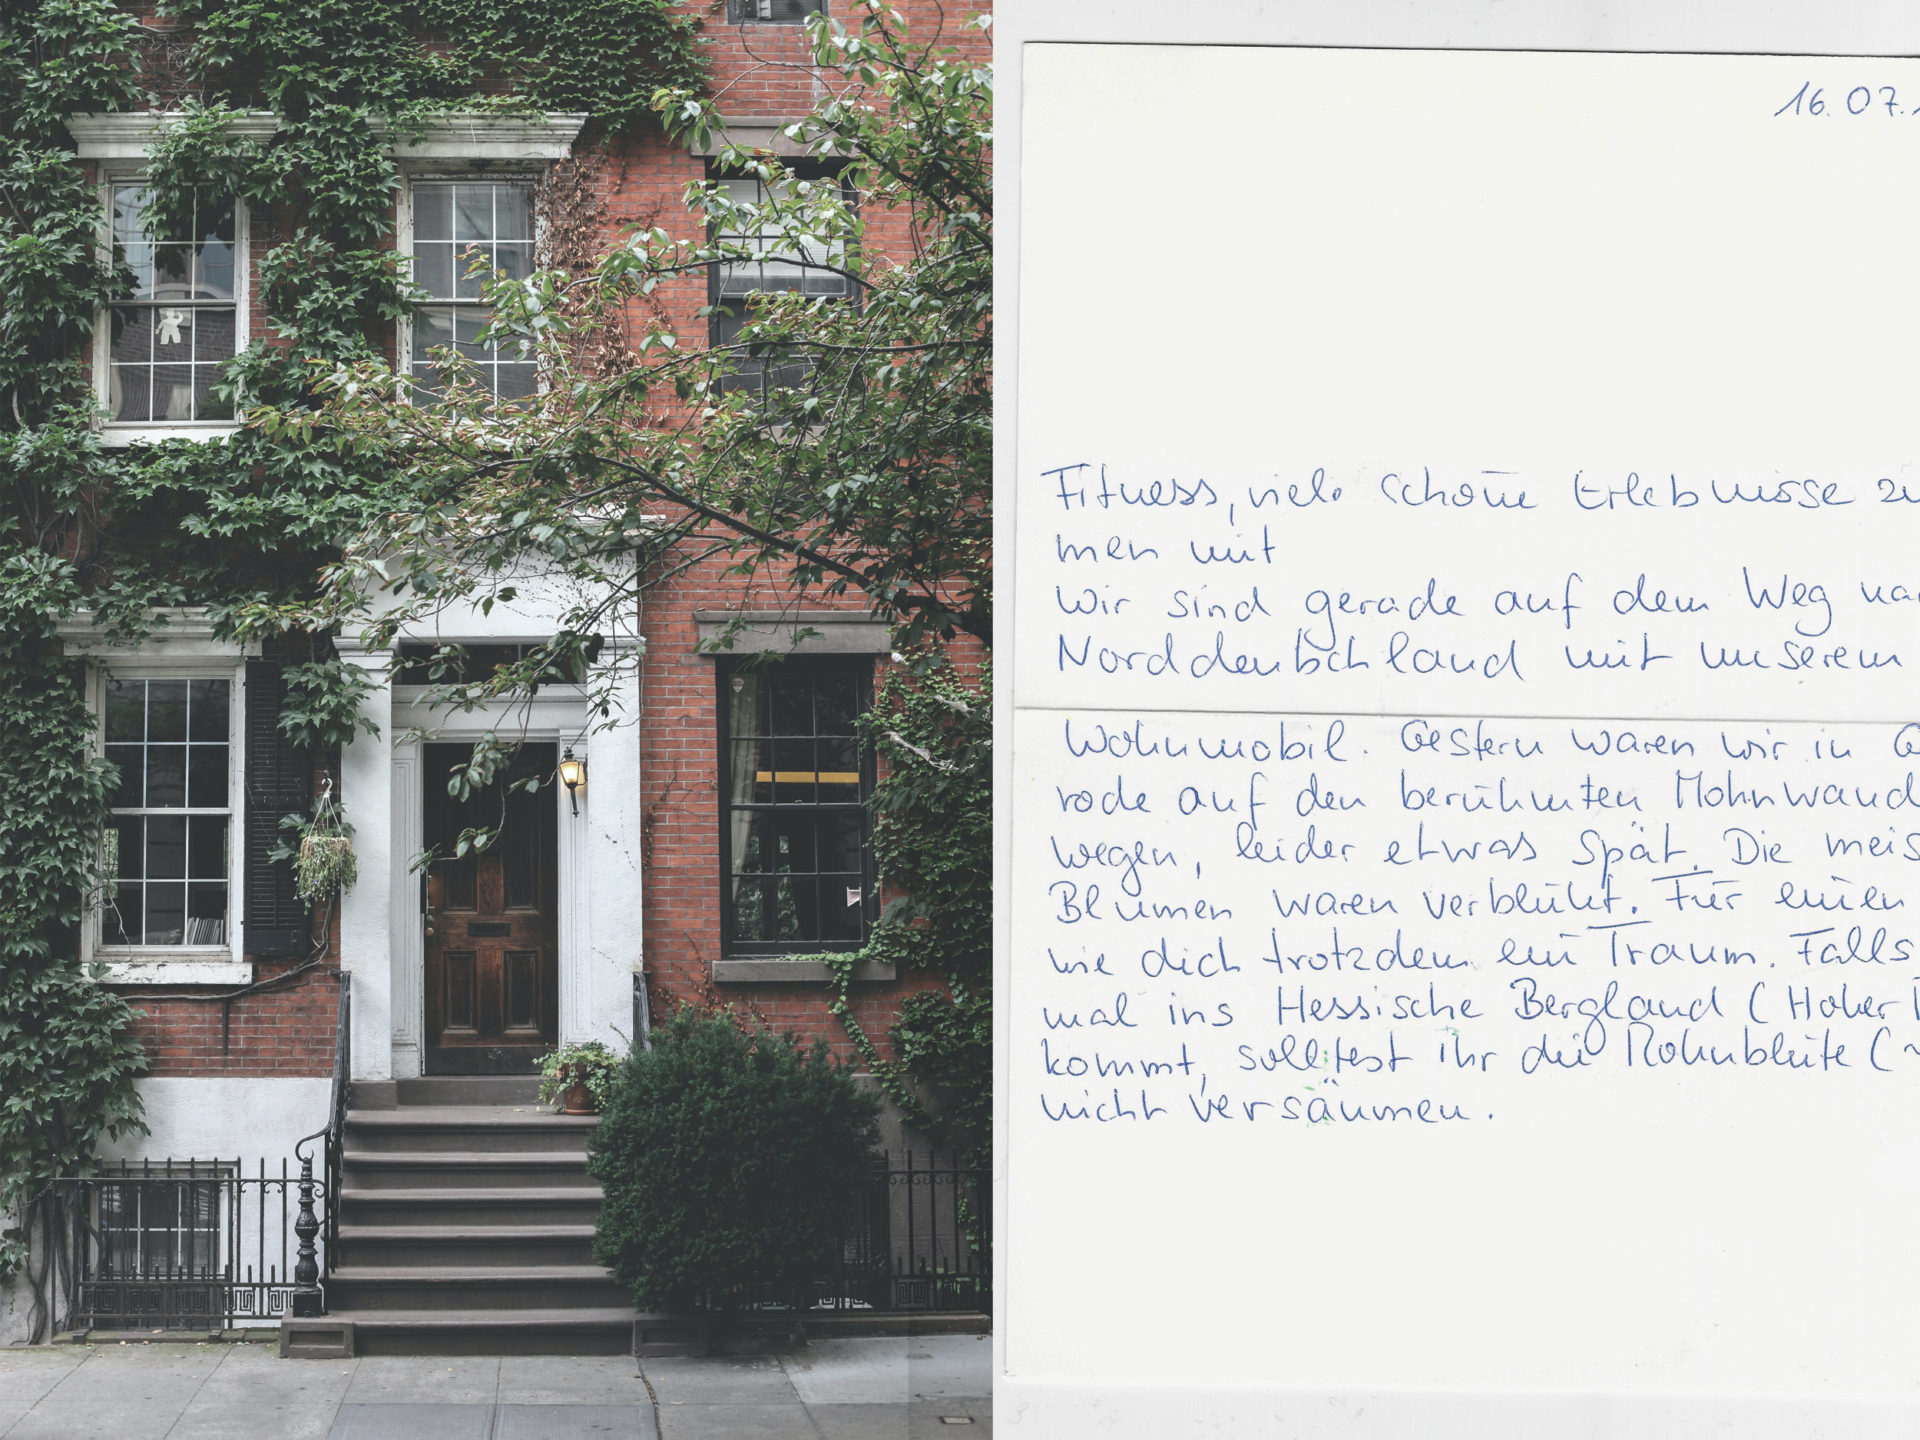 16.07.
Fitness, viele schöne Erlebnisse zu
men mit
Wir sind gerade auf dem Weg na
Norddeutschland mit unserem
Wohnmobil. Gestern waren wir in G
rode auf den berühmten Mohnwand
wegen, leider etwas spät. Die meis
Blumen waren verblüht. Für einen
wie dich trotzdem ein Traum. Falls
mal ins Hessische Bergland (Hoher
kommt, solltest ihr die Mohnblüte (~
nicht versäumen.